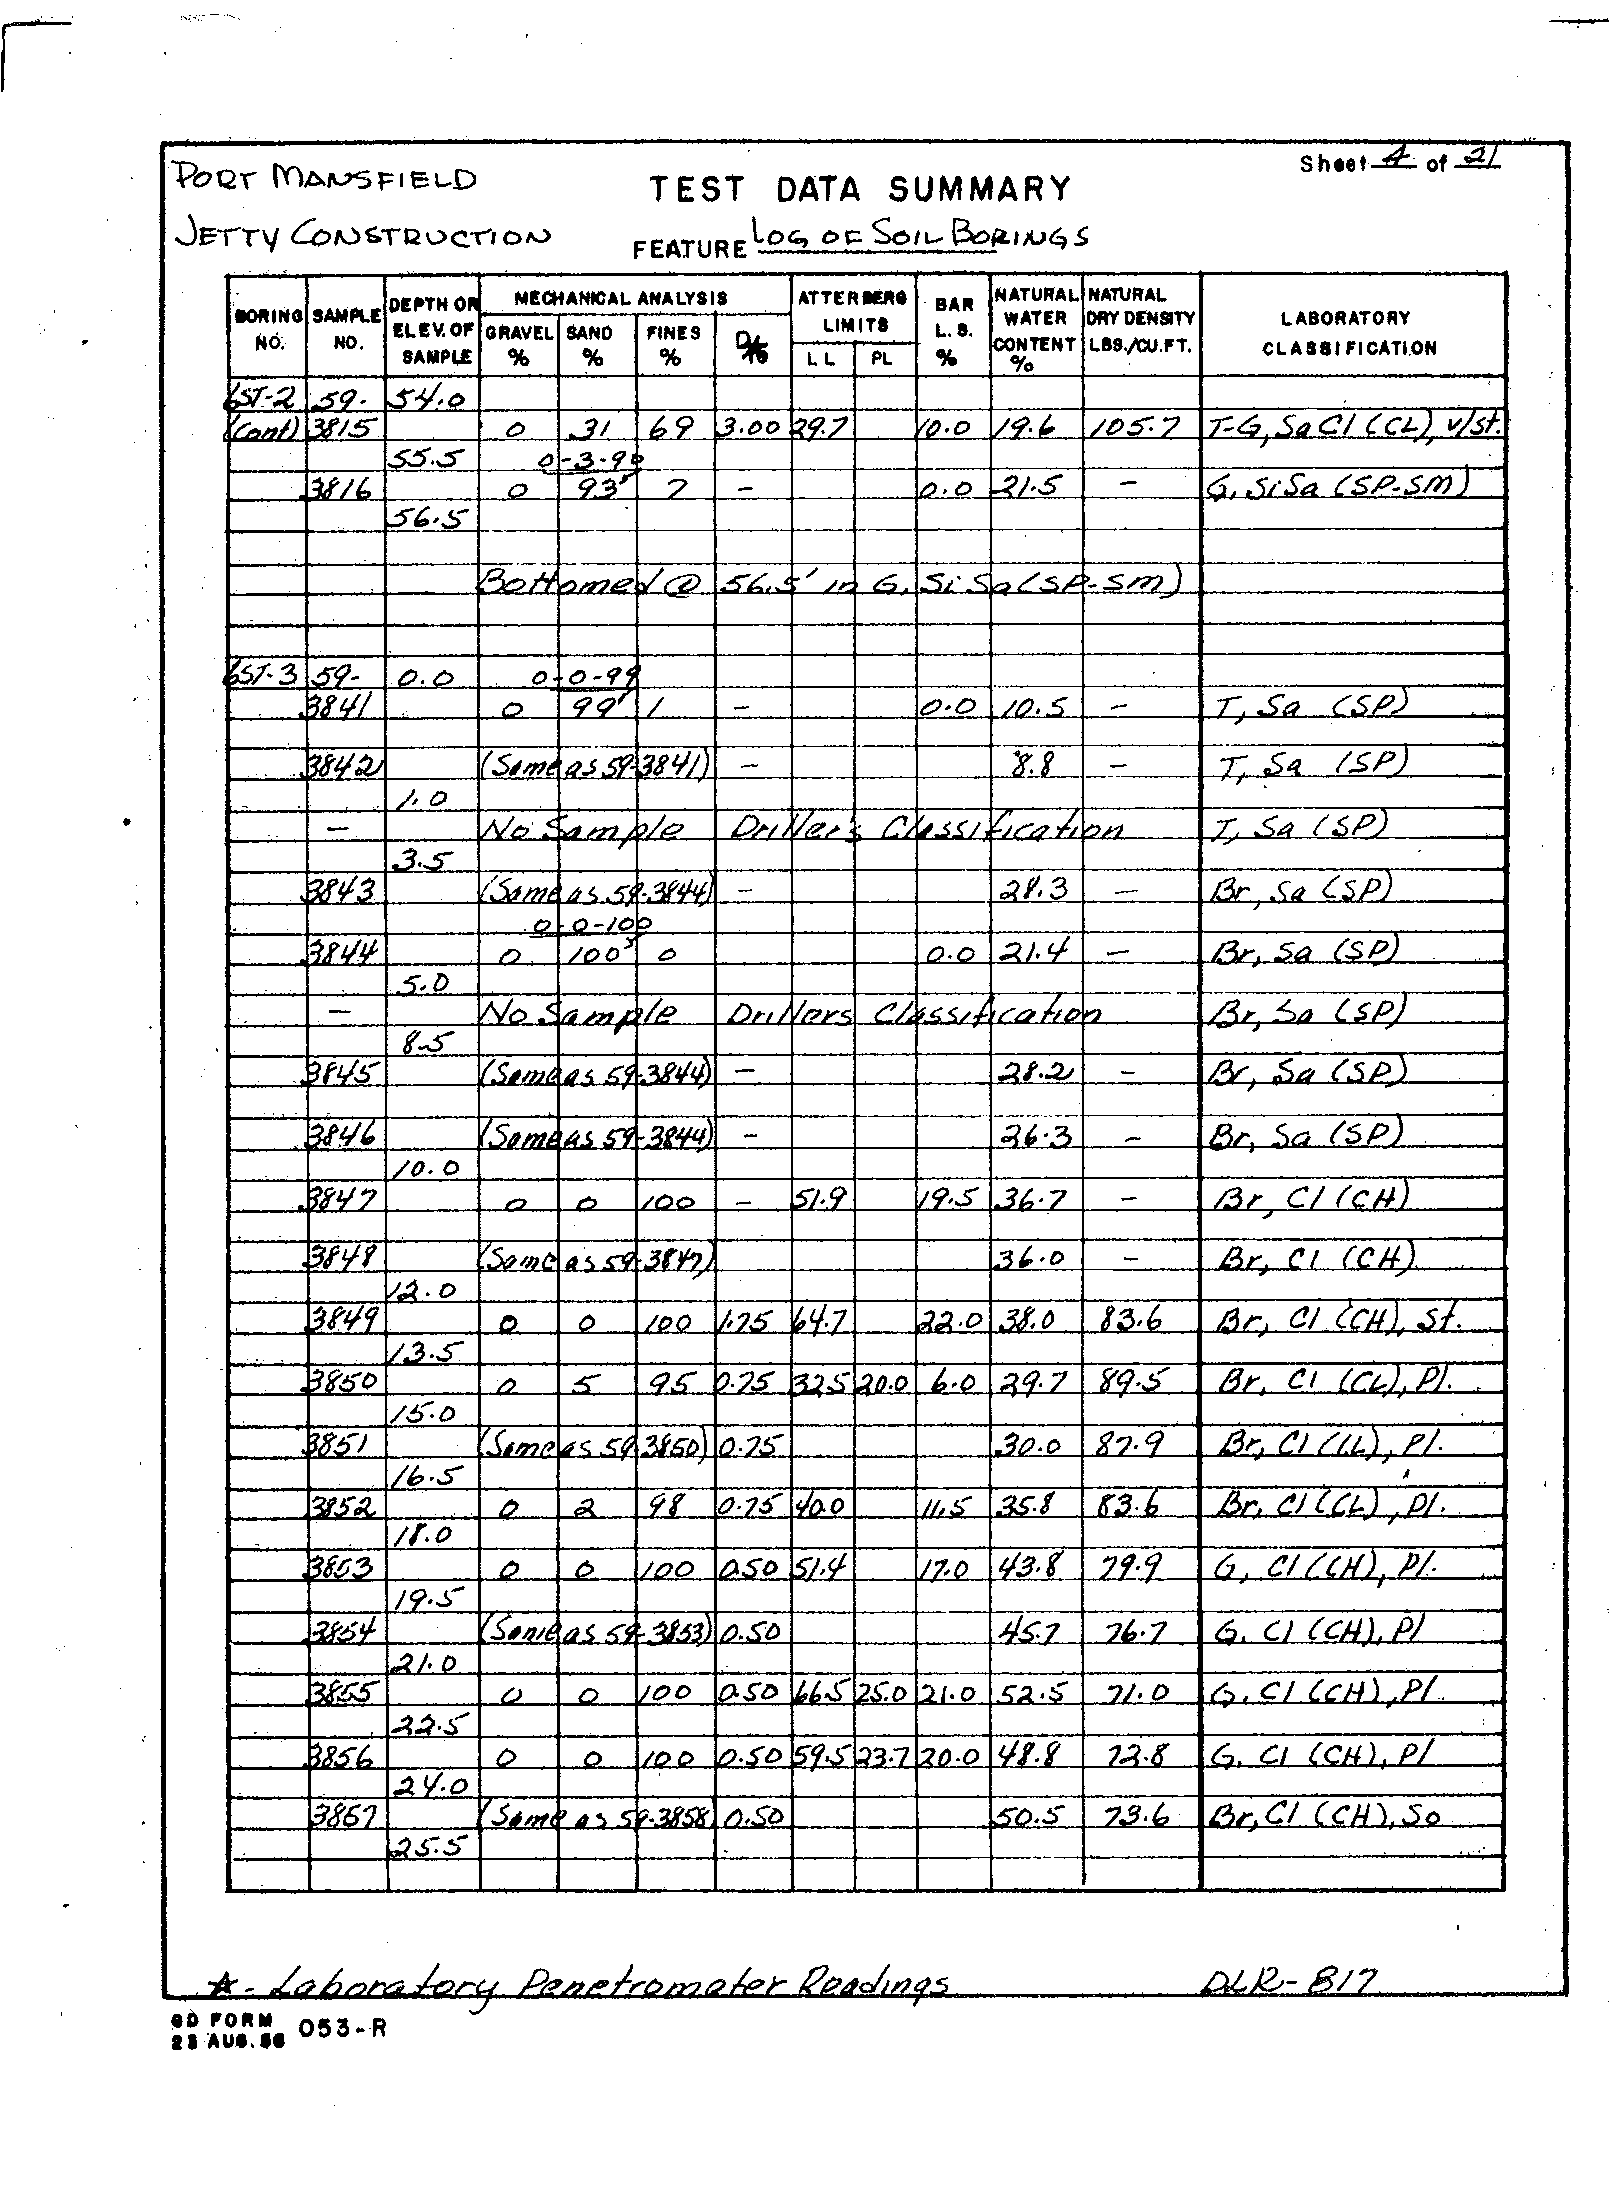 PORT MANSFIELD
Sheet 4 of 21
TEST DATA SUMMARY
JETTY CONSTRUCTION
FEATURE LOG OF SOIL BORINGS
BORING NO. SAMPLE NO. DEPTH OR ELEV. OF SAMPLE MECHANICAL ANALYSIS GRAVEL % SAND % FINES % ATTERBERG LIMITS LL PL BAR L.S. % NATURAL WATER CONTENT % NATURAL DRY DENSITY LBS./CU.FT. LABORATORY CLASSIFICATION
6ST-2 59- 54.0
(Cont) 3815 0 31 69 3.00 29.7 10.0 19.6 105.7 T-G, Sa Cl (CL), v/st.
55.5 0-3-90
3816 0 93 7 - 0.0 21.5 - G, Si Sa (SP-SM)
56.5
Bottomed @ 56.5' in G, Si Sa (SP-SM)
6ST-3 59- 0.0 0-0-99
3841 0 99 1 - 0.0 10.5 - T, Sa (SP)
3842 (Same as 59-3841) - 8.8 - T, Sa (SP)
1.0
- No Sample Driller's Classification T, Sa (SP)
3.5
3843 (Same as 59-3844) - 28.3 - Br, Sa (SP)
0-0-100
3844 0 100 0 0.0 21.4 - Br, Sa (SP)
5.0
- No Sample Drillers Classification Br, Sa (SP)
8.5
3845 (Same as 59-3844) - 28.2 - Br, Sa (SP)
3846 (Same as 59-3844) - 26.3 - Br, Sa (SP)
10.0
3847 0 0 100 - 51.9 19.5 36.7 - Br, Cl (CH)
3848 (Same as 59-3847) 36.0 - Br, Cl (CH)
12.0
3849 0 0 100 1.75 64.7 22.0 38.0 83.6 Br, Cl (CH), St.
13.5
3850 0 5 95 0.75 32.5 20.0 6.0 29.7 89.5 Br, Cl (CL), Pl.
15.0
3851 (Same as 59-3850) 0.75 30.0 87.9 Br, Cl (CL), Pl.
16.5
3852 0 2 98 0.75 40.0 11.5 35.8 83.6 Br, Cl (CL), Pl.
18.0
3853 0 0 100 0.50 51.4 17.0 43.8 79.9 G, Cl (CH), Pl.
19.5
3854 (Same as 59-3853) 0.50 45.7 76.7 G, Cl (CH), Pl
21.0
3855 0 0 100 0.50 66.5 25.0 21.0 52.5 71.0 G, Cl (CH), Pl.
22.5
3856 0 0 100 0.50 59.5 23.7 20.0 48.8 72.8 G, Cl (CH), Pl
24.0
3857 (Same as 59-3858) 0.50 50.5 73.6 Br, Cl (CH), So
25.5
☆ - Laboratory Penetrometer Readings DLR-817
GD FORM
23 AUG. 56 053-R